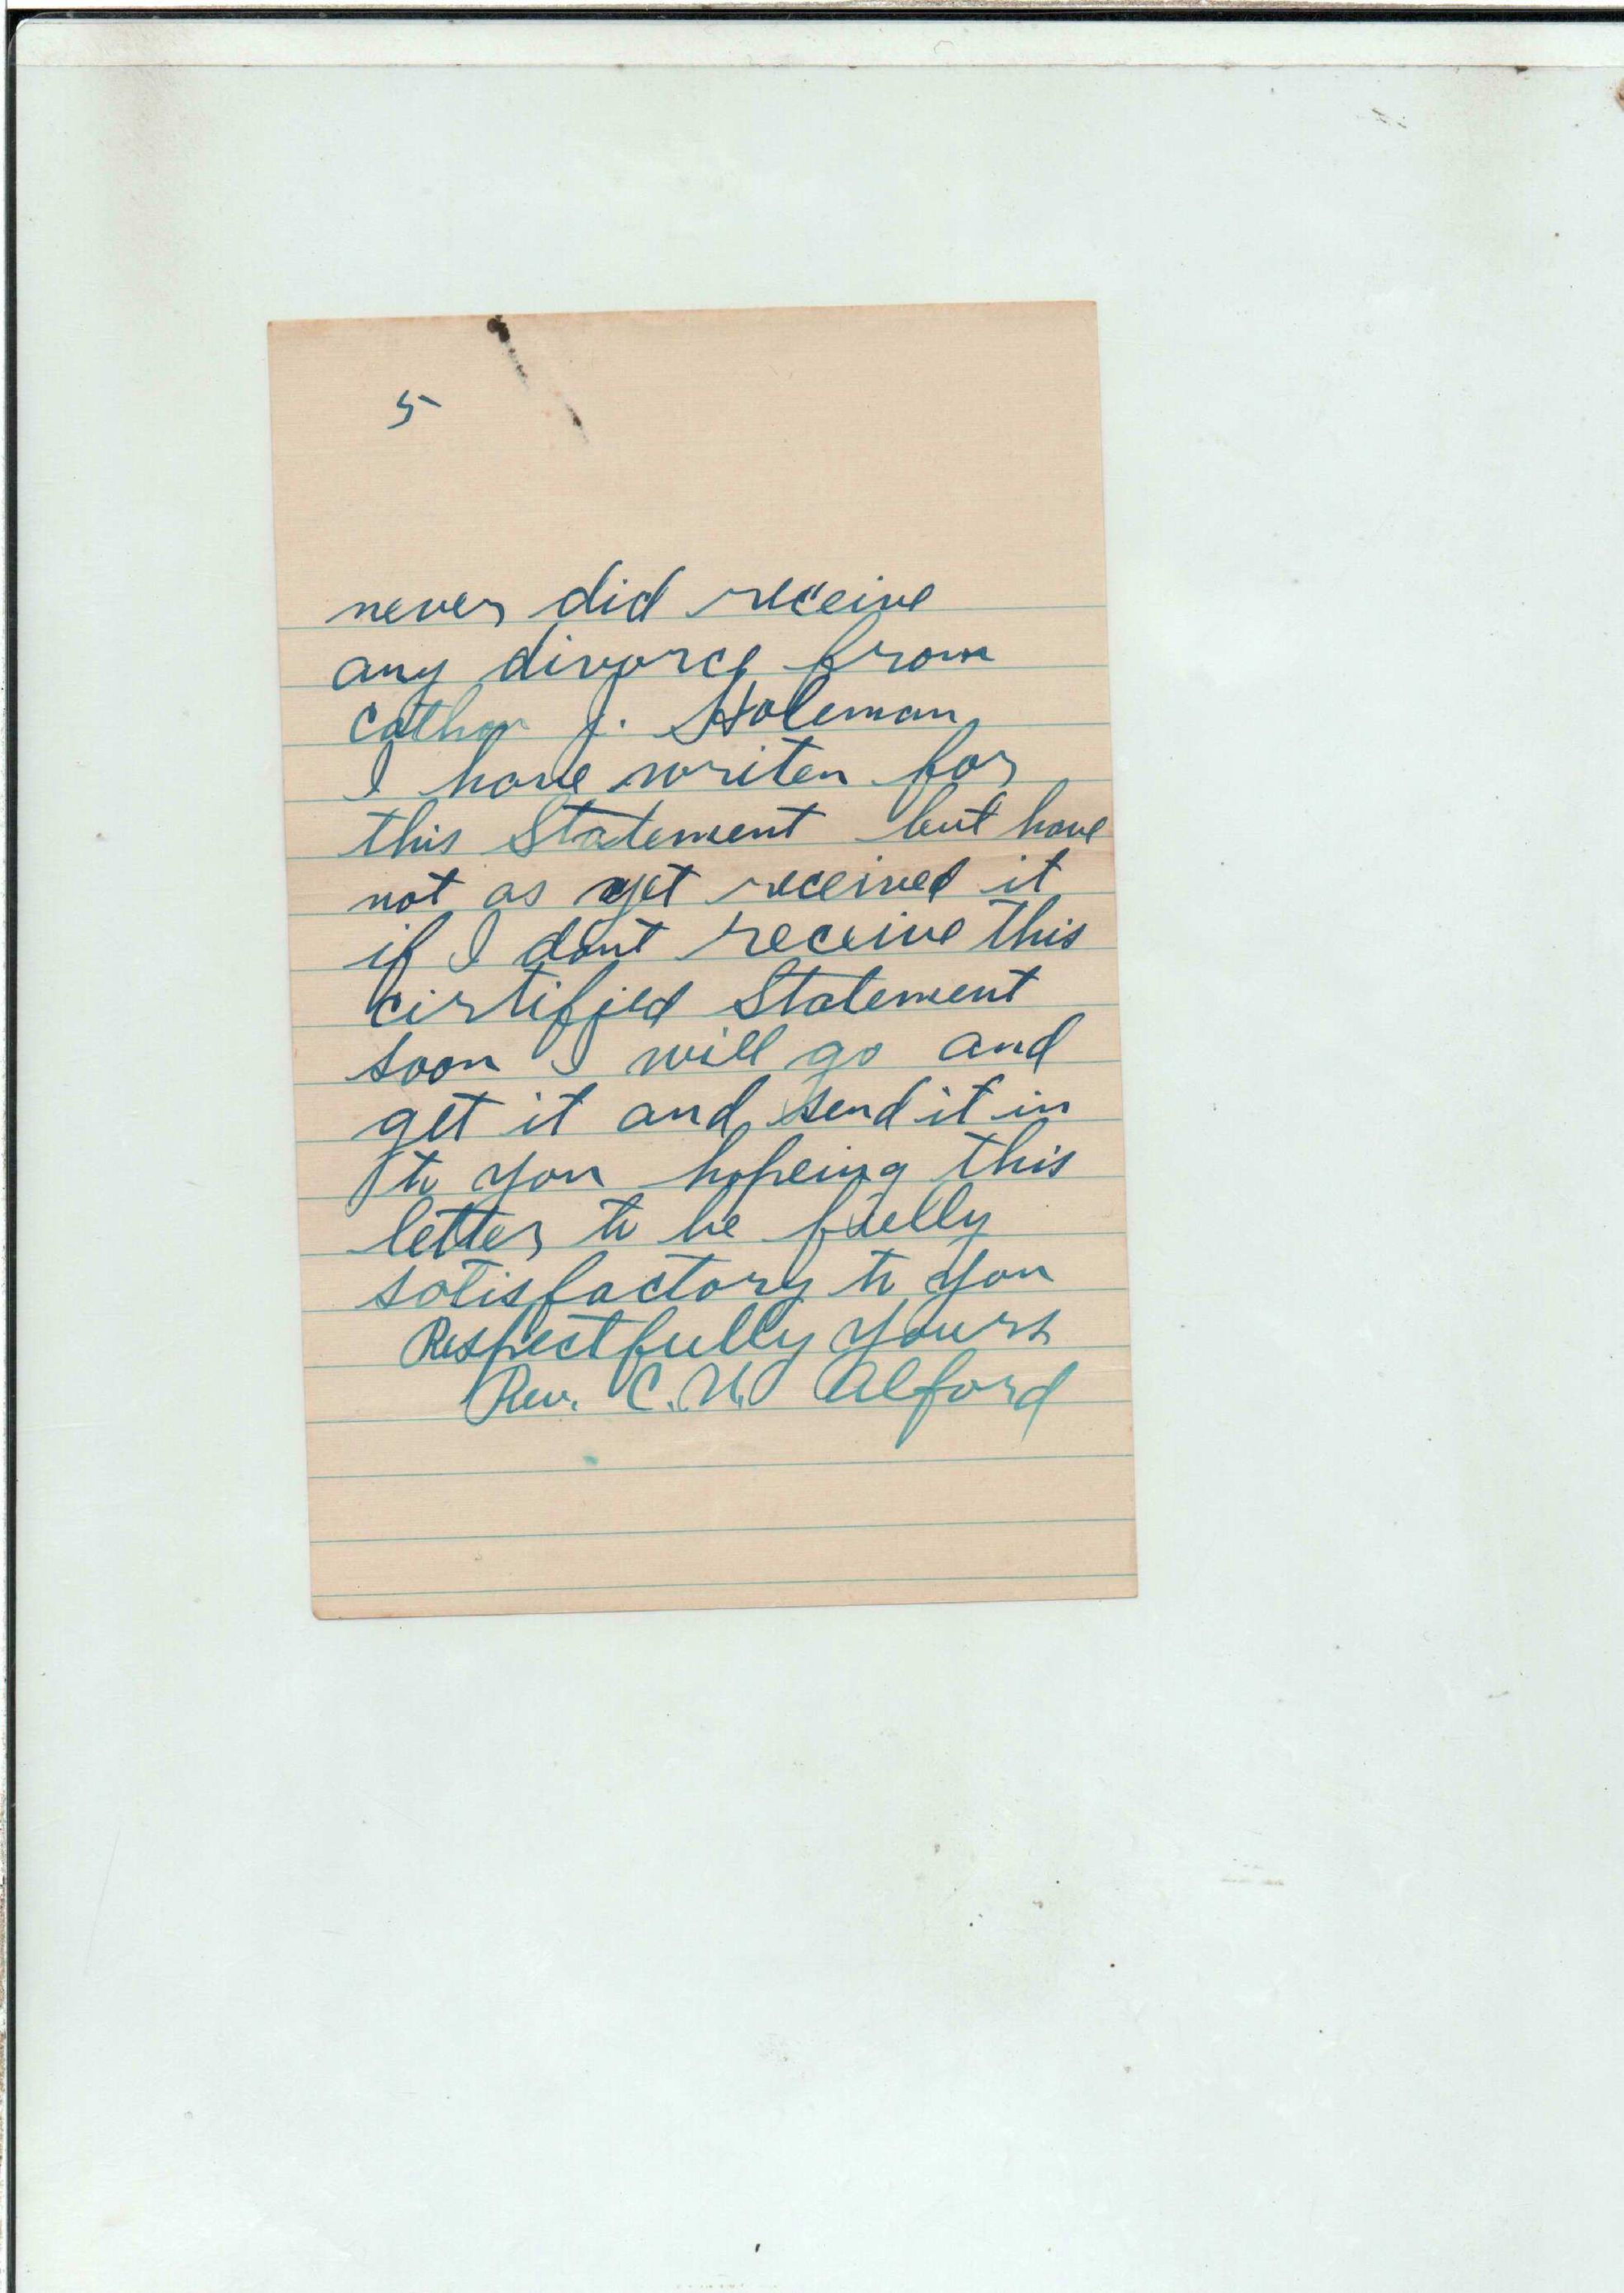 5
never did receive
any divorce from
J. Holeman
I have writen for
this Statement but have
not as yet received it
if I dont receive this
cirtified Statement
soon I will go and
get it and send it in
to you hopeing this
letter to be fully
satisfactory to you
Respectfully yours
Rev. C. Alford